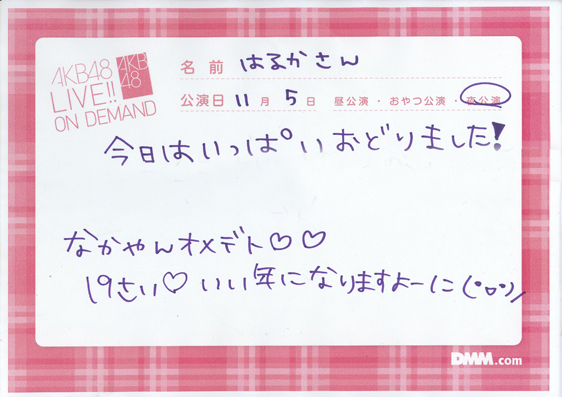 AKB48
LIVE!!
ON DEMAND
AKB
48
名前 はるかさん
公演日 11月5日 昼公演・おやつ公演・夜公演
今日はいっぱいおどりました!
なかやんオメデト♡♡
19さい♡いい年になりますよーに(°▽°)/
DMM.com